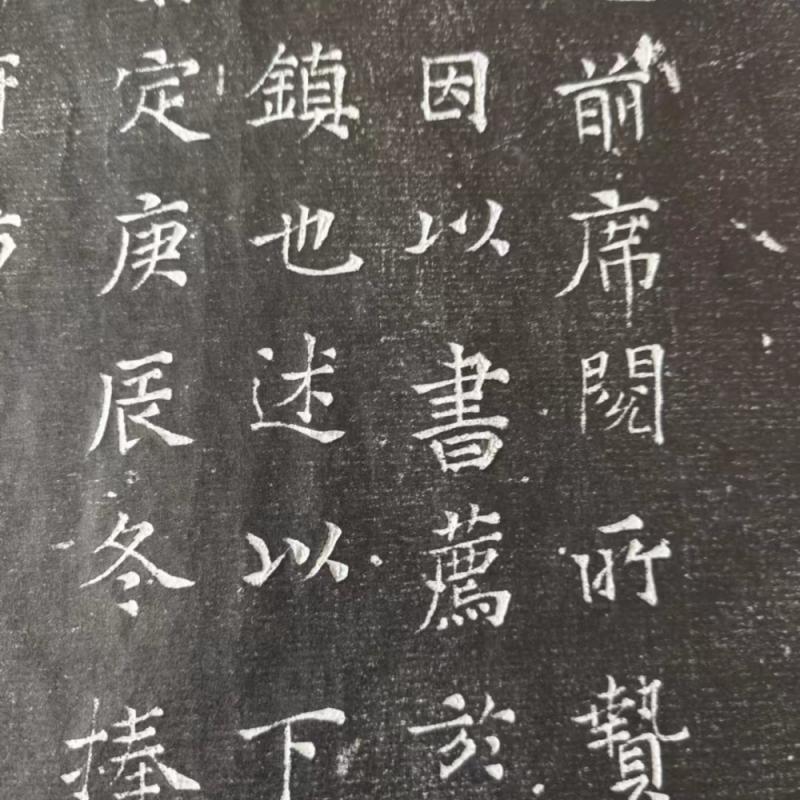 前席閱所贄
因以書薦於
鎮也述以下
定庚辰冬捧